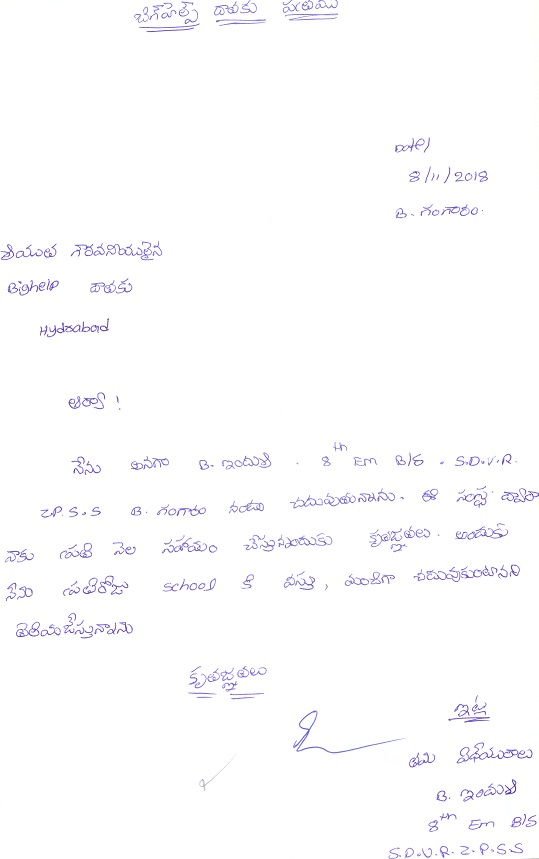 బిగ్‌హెల్ప్ దాతకు పత్రము
Date/
8/11/2018
B. గంగారం.
శ్రీయుత గౌరవనీయులైన
Bighelp దాతకు
Hydrabad
ఆర్యా !
నేను అనగా B. ఇందుశ్రీ . 8th Em B/S . S.D.V.R.
Z.P.S.S B. గంగారం నందు చదువుతున్నాను. ఈ సంస్థ ద్వారా
నాకు ప్రతి నెల సహాయం చేస్తున్నందుకు కృతజ్ఞతలు. అందుకు
నేను ప్రతిరోజు school కి వస్తూ, మంచిగా చదువుకుంటానని
తెలియజేస్తున్నాను
కృతజ్ఞతలు
ఇట్ల
తమ విధేయురాలు
B. ఇందుశ్రీ
8th Em B/S
S.D.V.R.Z.P.S.S